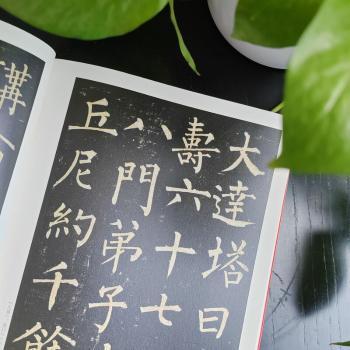 大達塔曰
壽六十七
八門弟子
丘尼約千餘